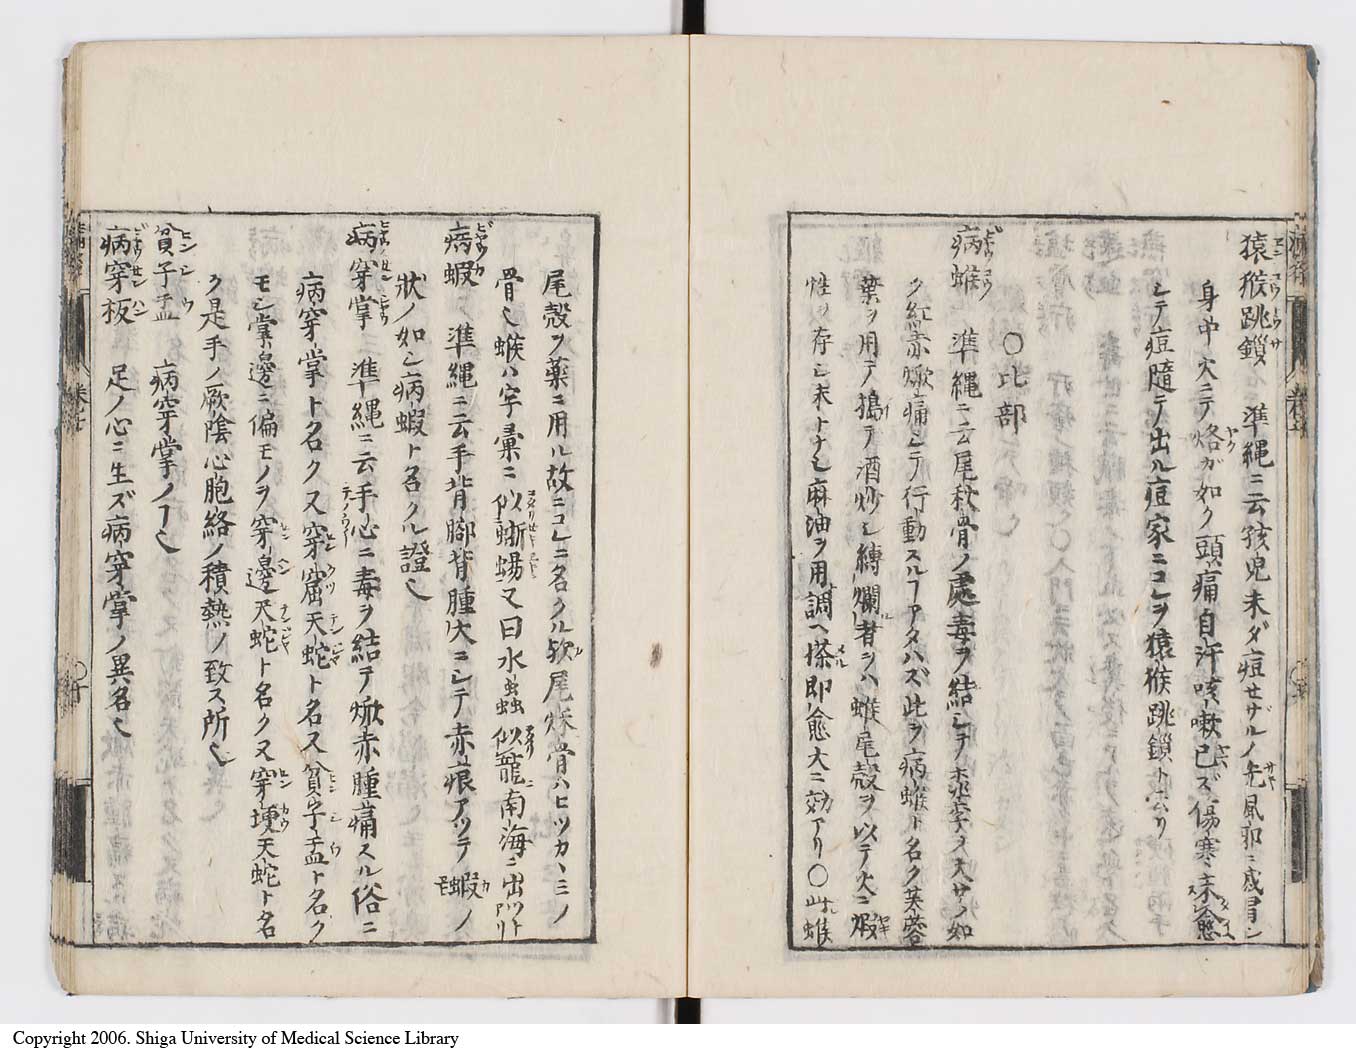 猿猴跳鎖 準縄ニ云孩児未ダ痘セザルノ先風邪ニ感冒シ
身中大ニテ烙ガ如ク頭痛自汗咳嗽已ズ傷寒未愈
シテ痘隨テ出ル痘家ニコレヲ猿猴跳鎖ト云リ
〇比部
病𧋦 準縄ニ云尾秋骨ノ處毒ヲ結シテ 大サノ如
ク紅赤焮痛シテ行動スルヿアタハズ此ヲ病𧋦ト名ク芙蓉
葉ヲ用テ搗テ酒炒シ縛爛者ヲハ𧋦尾殻ヲ以テ火ニ煆
性ヲ存シ末トナシ麻油ヲ用調ヘ搽即愈大ニ効アリ〇此𧋦
尾殻ヲ藥ニ用ル故ニコレニ名クル欤尾烌骨ハヒツカヽミノ
骨也𧋦ハ字彙ニ似蜥蜴又曰水蟲似龍南海ニ出ツトアリ
病蝦 準縄ニ云手背脚背腫大ニシテ赤痕アツテ蝦ノ
狀ノ如シ病蝦ト名クル證也
病穿掌 準縄ニ云手心ニ毒ヲ結テ焮赤腫痛スル俗ニ
病穿掌ト名ク又穿窟天蛇ト名ス貧子盂ト名ク
モシ掌邊ニ偏モノヲ穿邊天蛇ト名ク又穿埂天蛇ト名
ク是手ノ厥陰心胞絡ノ積熱ノ致ス所也
貧子盂 病穿掌ノヿ也
病穿板 足ノ心ニ生ズ病穿掌ノ異名也
Copyright 2006. Shiga University of Medical Science Library